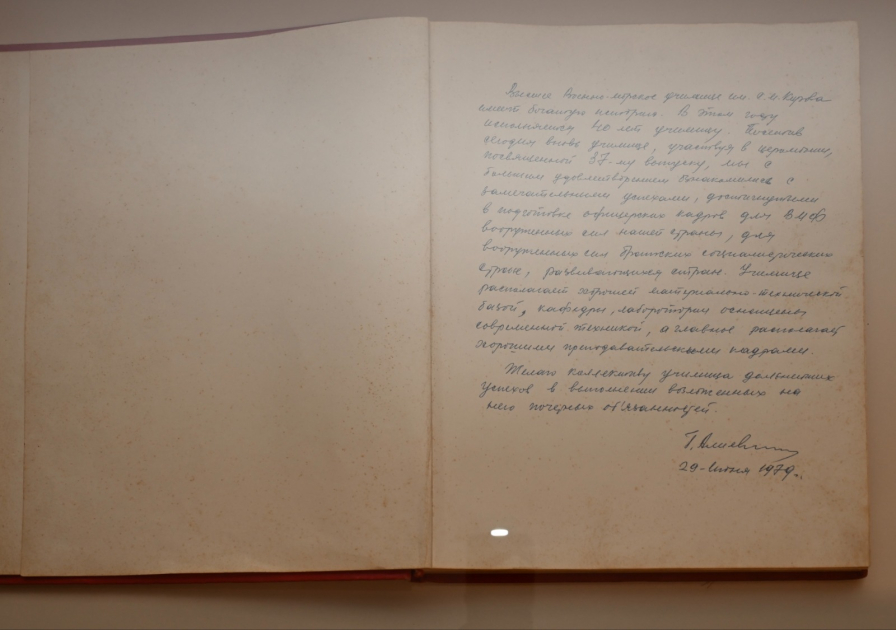 Высшее Военно-морское училище им. С.М. Кирова
имеет богатую историю. В этом году
исполняется 40 лет училищу. Посетив
сегодня вновь училище, участвуя в церемонии,
посвященной 37-му выпуску, мы с
большим удовлетворением ознакомились с
замечательными успехами, достигнутыми
в подготовке офицерских кадров для ВМФ
вооруженных сил нашей страны, для
вооруженных сил братских социалистических
стран, развивающихся стран. Училище
располагает хорошей материально-технической
базой, кафедры, лаборатории оснащены
современной техникой, а главное располагает
хорошими преподавательскими кадрами.
Желаю коллективу училища дальнейших
успехов в выполнении возложенных на
него почетных обязанностей.
Г. Алиев
29 июня 1979 г.